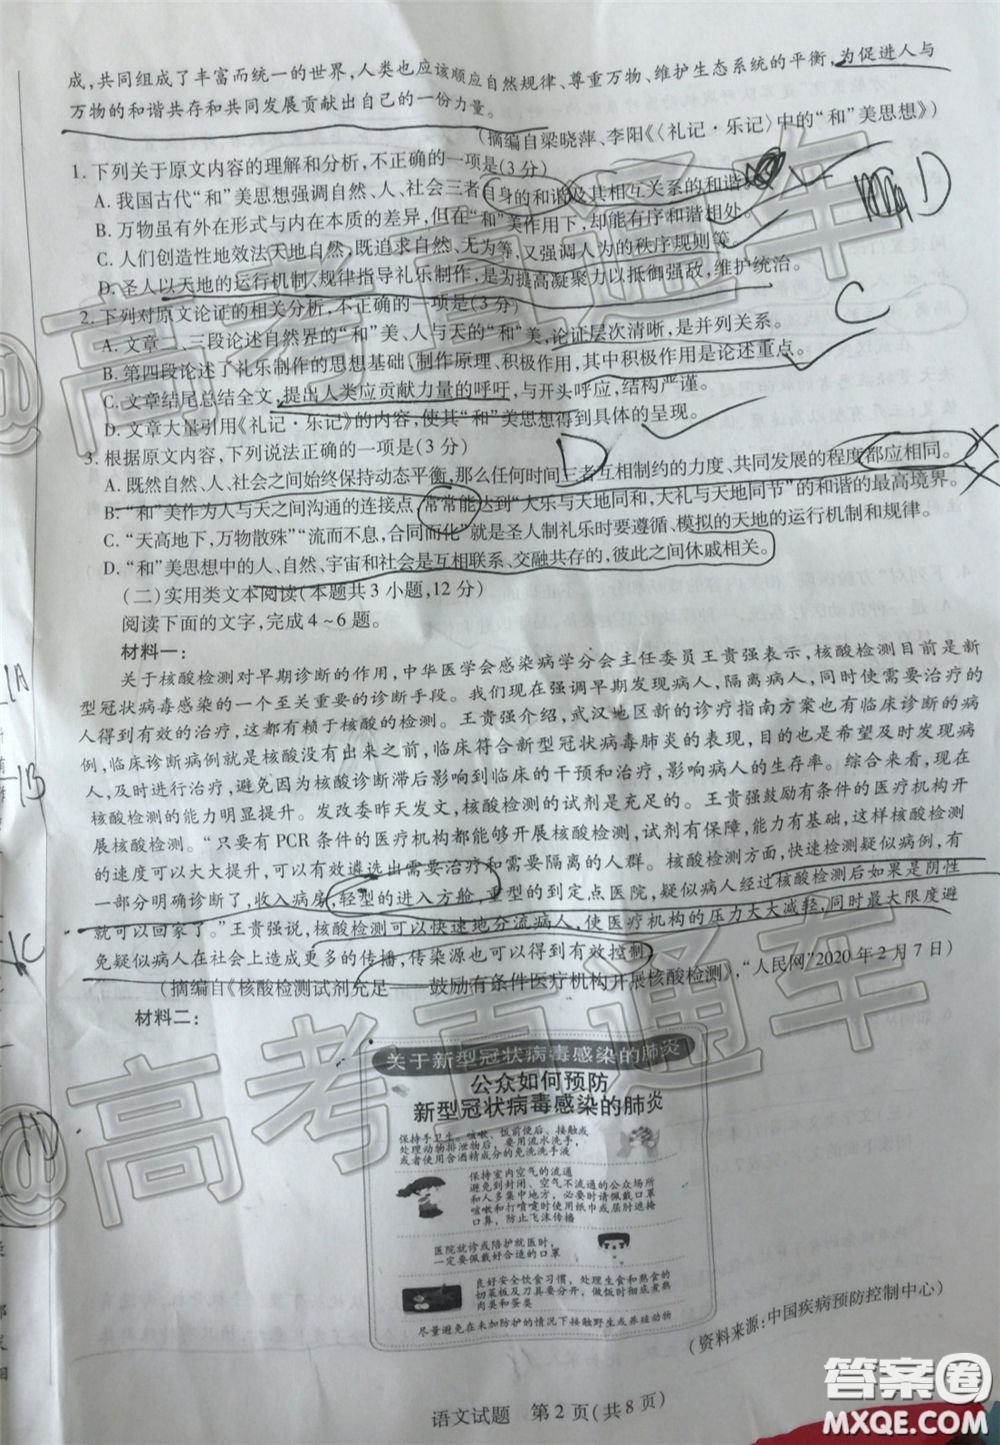 成,共同组成了丰富而统一的世界,人类也应该顺应自然规律、尊重万物、维护生态系统的平衡,为促进人与
万物的和谐共存和共同发展贡献出自己的一份力量。
(摘编自梁晓萍、李阳《〈礼记·乐记〉中的“和”美思想》)
1. 下列关于原文内容的理解和分析,不正确的一项是(3分)
A. 我国古代“和”美思想强调自然、人、社会三者自身的和谐及其相互关系的和谐。
D
B. 万物虽有外在形式与内在本质的差异,但在“和”美作用下,却能有序和谐相处。
C. 人们创造性地效法天地自然,既追求自然、无为等,又强调人为的秩序规则等。
D. 圣人以天地的运行机制、规律指导礼乐制作,是为提高凝聚力以抵御强敌,维护统治。
2. 下列对原文论证的相关分析,不正确的一项是(3分)
C
A. 文章二、三段论述自然界的“和”美、人与天的“和”美,论证层次清晰,是并列关系。
B. 第四段论述了礼乐制作的思想基础、制作原理、积极作用,其中积极作用是论述重点。
C. 文章结尾总结全文,提出人类应贡献力量的呼吁,与开头呼应,结构严谨。
D. 文章大量引用《礼记·乐记》的内容,使其“和”美思想得到具体的呈现。
3. 根据原文内容,下列说法正确的一项是(3分)
D
A. 既然自然、人、社会之间始终保持动态平衡,那么任何时间三者互相制约的力度、共同发展的程度都应相同。
B. “和”美作为人与天之间沟通的连接点,常常能达到“大乐与天地同和,大礼与天地同节”的和谐的最高境界。
C. “天高地下,万物散殊”“流而不息,合同而化”就是圣人制礼乐时要遵循、模拟的天地的运行机制和规律。
D. “和”美思想中的人、自然、宇宙和社会是互相联系、交融共存的,彼此之间休戚相关。
(二)实用类文本阅读(本题共3小题,12分)
阅读下面的文字,完成4~6题。
材料一:
关于核酸检测对早期诊断的作用,中华医学会感染病学分会主任委员王贵强表示,核酸检测目前是新
型冠状病毒感染的一个至关重要的诊断手段。我们现在强调早期发现病人,隔离病人,同时使需要治疗的
人得到有效的治疗,这都有赖于核酸的检测。王贵强介绍,武汉地区新的诊疗指南方案也有临床诊断的病
例,临床诊断病例就是核酸没有出来之前,临床符合新型冠状病毒肺炎的表现,目的也是希望及时发现病
人,及时进行治疗,避免因为核酸诊断滞后影响到临床的干预和治疗,影响病人的生存率。综合来看,现在
核酸检测的能力明显提升。发改委昨天发文,核酸检测的试剂是充足的。王贵强鼓励有条件的医疗机构开
展核酸检测。“只要有PCR条件的医疗机构都能够开展核酸检测,试剂有保障,能力有基础,这样核酸检测
的速度可以大大提升,可以有效遴选出需要治疗和需要隔离的人群。核酸检测方面,快速检测疑似病例,有
一部分明确诊断了,收入病房,轻型的进入方舱,重型的到定点医院,疑似病人经过核酸检测后如果是阴性
就可以回家了。”王贵强说,核酸检测可以快速地分流病人,使医疗机构的压力大大减轻,同时最大限度避
免疑似病人在社会上造成更多的传播,传染源也可以得到有效控制。
(摘编自《核酸检测试剂充足——鼓励有条件医疗机构开展核酸检测》,“人民网”2020年2月7日)
材料二:
关于新型冠状病毒感染的肺炎
公众如何预防
新型冠状病毒感染的肺炎
保持手卫生。咳嗽、饭前便后、接触或
处理动物排泄物后,要用流水洗手,
或者使用含酒精成分的免洗洗手液
保持室内空气的流通
避免到封闭、空气不流通的公众场所
和人多集中地方,必要时请佩戴口罩
咳嗽和打喷嚏时使用纸巾或屈肘遮掩
口鼻,防止飞沫传播
医院就诊或陪护就医时,
一定要佩戴好合适的口罩
良好安全饮食习惯,处理生食和熟食的
切菜板及刀具要分开,做饭时彻底煮熟
肉类和蛋类
尽量避免在未加防护的情况下接触野生或养殖动物
(资料来源:中国疾病预防控制中心)
语文试题 第2页(共8页)
1A
1B
1C
1D
@高考直通车
@高考直通车
答案圈
MXQE.COM